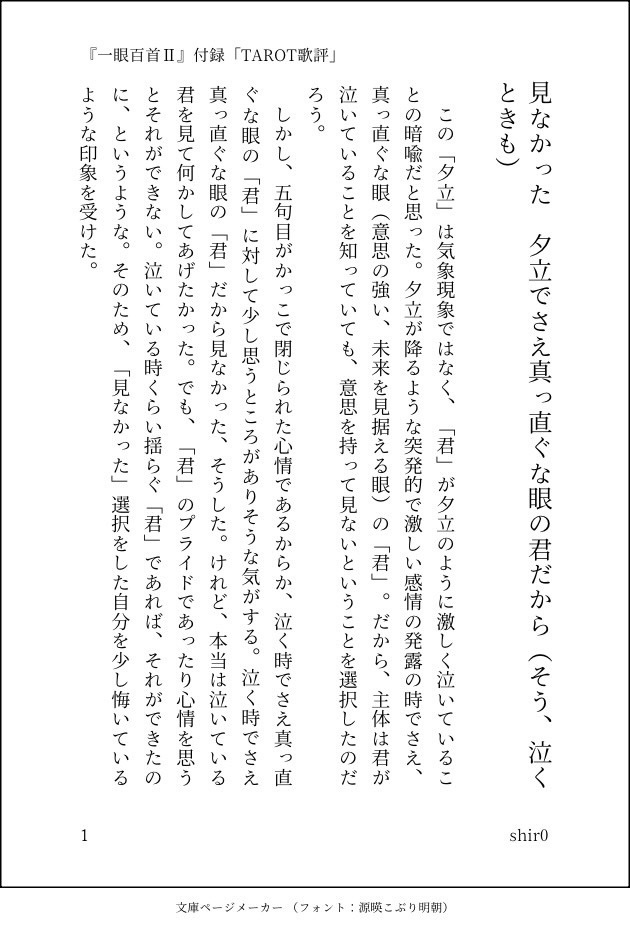 『一眼百首Ⅱ』付録「TAROT歌評」
見なかった　夕立でさえ真っ直ぐな眼の君だから（そう、泣く
ときも）
この「夕立」は気象現象ではなく、「君」が夕立のように激しく泣いているこ
との暗喩だと思った。夕立が降るような突発的で激しい感情の発露の時でさえ、
真っ直ぐな眼（意思の強い、未来を見据える眼）の「君」。だから、主体は君が
泣いていることを知っていても、意思を持って見ないということを選択したのだ
ろう。
しかし、五句目がかっこで閉じられた心情であるからか、泣く時でさえ真っ直
ぐな眼の「君」に対して少し思うところがありそうな気がする。泣く時でさえ
真っ直ぐな眼の「君」だから見なかった、そうした。けれど、本当は泣いている
君を見て何かしてあげたかった。でも、「君」のプライドであったり心情を思う
とそれができない。泣いている時くらい揺らぐ「君」であれば、それができたの
に、というような。そのため、「見なかった」選択をした自分を少し悔いている
ような印象を受けた。
1
shir0
文庫ページメーカー（フォント：源暎こぶり明朝）